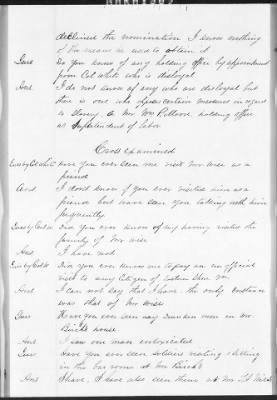 declined the nomination I know nothing
of the means he used to obtain it
Ques Do you know of any holding office by appointment
from Col White who is disloyal
Ans I do not know of any who are disloyal but
there is one who certain measures in regard
to slavery A Mr Wm holding office
as Superintendent of labor
Cross examined
Ques by Col White Have you ever seen me visit Mr Wise as a
friend
Ans I don't know if you ever visited him as a
friend but have seen you talking with him
frequently
Ques by Col W Did you ever know of my having visited the
family of Mr Wise
Ans I have not
Ques by Col W Did you ever know me to pay an unofficial
visit to any Citizen of Eastern Shore Va
Ans I can not say that I have the only instance
was that of Mr Wise
Ques Have you ever seen any drunken men in Mr
house
Ans I saw one man intoxicated
Ques Have you ever seen soldiers resting & sitting
in the bar room at Mr
Ans I have, I have also seen them at Mr